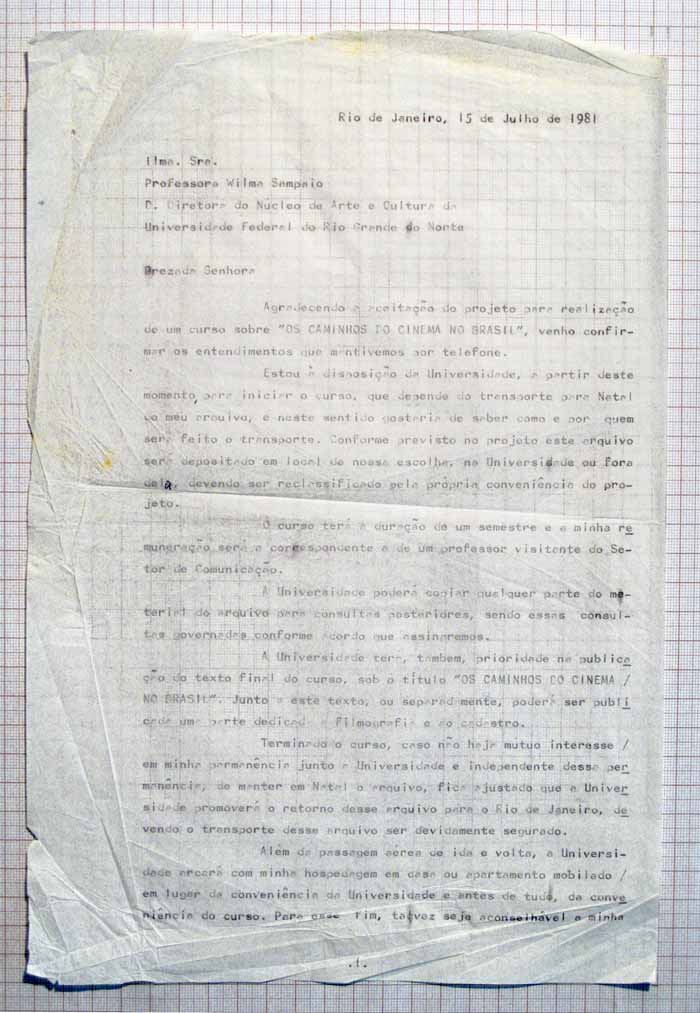 Rio de Janeiro, 15 de Julho de 1981
Ilma. Sra.
Professora Wilma Sampaio
D. Diretora do Núcleo de Arte e Cultura da
Universidade Federal do Rio Grande do Norte
Prezada Senhora
Agradecendo a aceitação do projeto para realização
de um curso sobre "OS CAMINHOS DO CINEMA NO BRASIL", venho confir-
mar os entendimentos que mantivemos por telefone.
Estou à disposição da Universidade, a partir deste
momento, para iniciar o curso, que depende do transporte para Natal
do meu arquivo, e neste sentido gostaria de saber como e por quem
será feito o transporte. Conforme previsto no projeto este arquivo
será depositado em local de nossa escolha, na Universidade ou fora
dela, devendo ser reclassificado pela própria conveniência do pro-
jeto.
O curso terá a duração de um semestre e a minha re
muneração será a correspondente a de um professor visitante do Se-
tor de Comunicação.
A Universidade poderá copiar qualquer parte do ma-
terial do arquivo para consultas posteriores, sendo essas consul-
tas governadas conforme acordo que assinaremos.
A Universidade tera, tambem, prioridade na publica
ção do texto final do curso, sob o título "OS CAMINHOS DO CINEMA /
NO BRASIL". Junto a este texto, ou separadamente, poderá ser publi
cada uma parte dedicada a Filmografia e ao cadastro.
Terminado o curso, caso não haja mutuo interesse /
em minha permanência junto a Universidade e independente dessa per
manência, de manter em Natal o arquivo, fica ajustado que a Univer
sidade promoverá o retorno desse arquivo para o Rio de Janeiro, de
vendo o transporte desse arquivo ser devidamente segurado.
Além da passagem aérea de ida e volta, a Universi-
dade arcará com minha hospedagem em casa ou apartamento mobilado /
em lugar da conveniência da Universidade e antes de tudo, da conve
niência do curso. Para esse fim, talvez seja aconselhável a minha
.1.